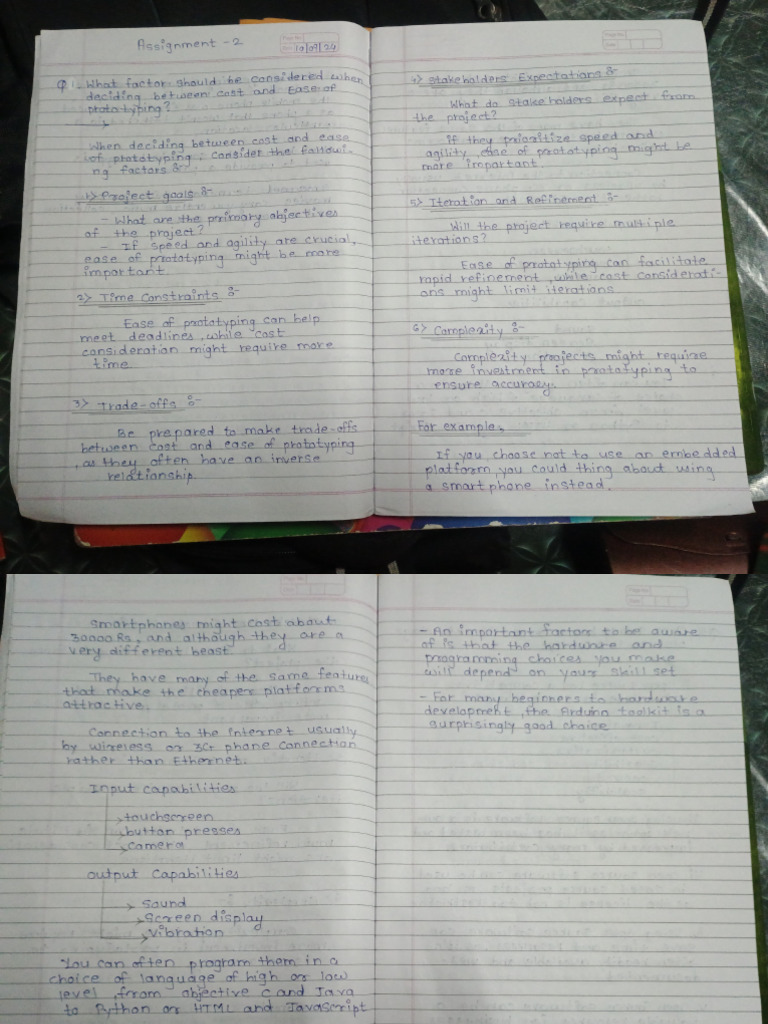 Assignment - 2
Page No.
Date 10/09/24
Q.1 - What factor should be considered when
deciding between cost and Ease of
prototyping?
When deciding between cost and ease
of prototyping, consider the followi-
ng factors :-
1> Project goals :-
- What are the primary objectives
of the project?
- If speed and agility are crucial,
ease of prototyping might be more
important
2> Time Constraints :-
Ease of prototyping can help
meet deadlines, while cost
consideration might require more
time
3> Trade-offs :-
Be prepared to make trade-offs
between cost and ease of prototyping
, as they often have an inverse
relationship.
Page No.
Date
4> Stakeholders Expectations :-
What do stakeholders expect from
the project?
If they prioritize speed and
agility, ease of prototyping might be
more important.
5> Iteration and Refinement :-
Will the project require multiple
iterations?
Ease of prototyping can facilitate
rapid refinement, while cost considerati-
ons might limit iterations
6> Complexity :-
Complexity projects might require
more investment in prototyping to
ensure accuracy.
For example,
If you, choose not to use an embedded
platform, you could thing about using
a smart phone instead.
smartphones might cost about
30000 Rs, and although they are a
very different beast
They have many of the same features
that make the cheaper platforms
attractive.
Connection to the internet usually
by wireless or 3G phone connection
rather than Ethernet.
Input capabilities
touchscreen
button presses
camera
output capabilities
Sound
Screen display
vibration
You can often program them in a
choice of language of high or low
level, from objective c and Java
to Python or HTML and JavaScript
- An important factor to be aware
of is that the hardware and
programming choices you make
will depend on your skill set
- For many beginners to hardware
development, the Arduino toolkit is a
surprisingly good choice